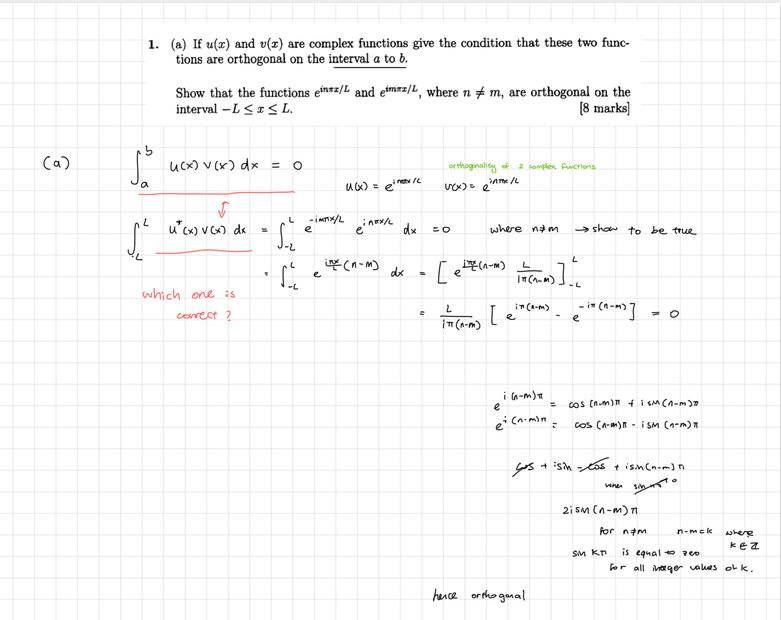 1. (a) If u(x) and v(x) are complex functions give the condition that these two func-
tions are orthogonal on the interval a to b.
Show that the functions e^{inπx/L} and e^{imπx/L}, where n ≠ m, are orthogonal on the
interval −L ≤ x ≤ L. [8 marks]
(a) ∫_a^b u(x) v(x) dx = 0
orthogonality of 2 complex functions
u(x) = e^{imπx/L} v(x) = e^{inπx/L}
∫_{-L}^{L} u*(x) v(x) dx = ∫_{-L}^{L} e^{-imπx/L} e^{inπx/L} dx = 0 where n≠m → show to be true
which one is
correct ?
= ∫_{-L}^{L} e^{iπx/L (n-m)} dx = [ e^{iπx/L (n-m)} L/iπ(n-m) ]_{-L}^{L}
= L/iπ(n-m) [ e^{iπ(n-m)} - e^{-iπ(n-m)} ] = 0
e^{i(n-m)π} = cos (n-m)π + i sin (n-m)π
e^{i(n-m)π} = cos (n-m)π - i sin (n-m)π
cos + isin - cos + isin(n-m)π
when sin
2i sin (n-m) π
for n≠m n-m=k where
k ∈ Z
sin kπ is equal to zero
for all integer values of k.
hence orthogonal